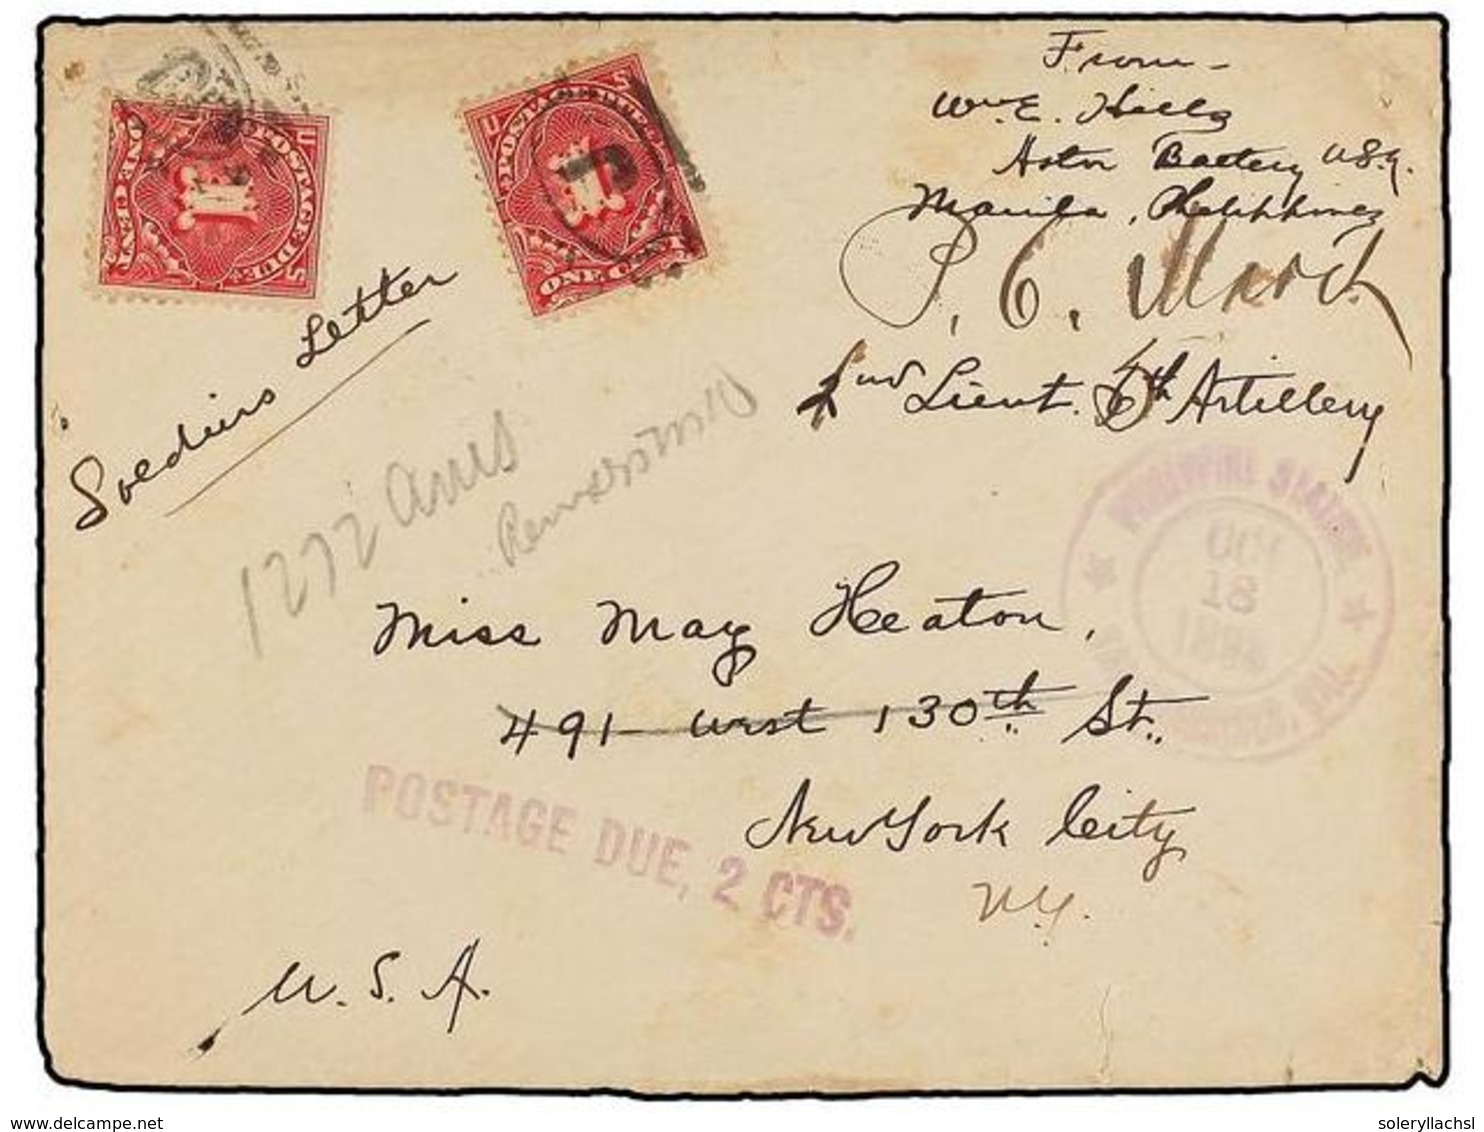 From -
Wm. E. Hills
Astor Battery U.S.A.
Manila, Philippines
P. C. March
2nd Lieut. 5th Artillery
U POSTAGE DUE S
1
ONE CENT
U POSTAGE DUE S
1
ONE CENT
Soldiers Letter
1272 Ams
PHILIPPINE STATION
OCT
18
1898
SAN FRANCISCO, CAL.
Miss May Heaton,
491 West 130th St.,
New York City
N.Y.
POSTAGE DUE, 2 CTS.
U. S. A.
soleryllachsl